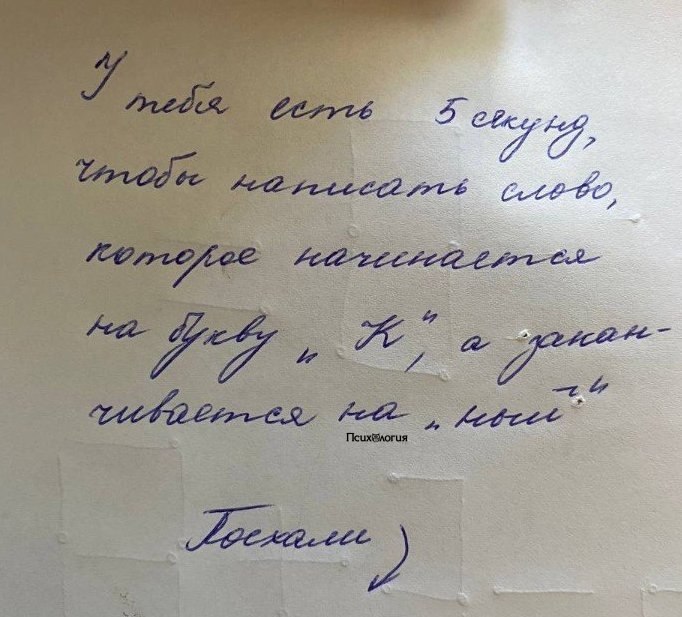 У тебя есть 5 секунд,
чтобы написать слово,
которое начинается
на букву „К“, а закан-
чивается на „ный“
Психология
Поехали